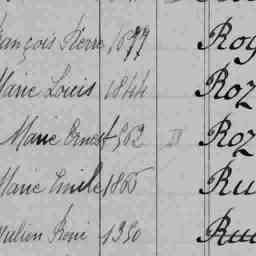 rançois Pierre 1877 Roy
Marie Louis 1844 Roz
Marie Ernest 1862 Roz
Marie Emile 1865 Ru
Julien René 1930